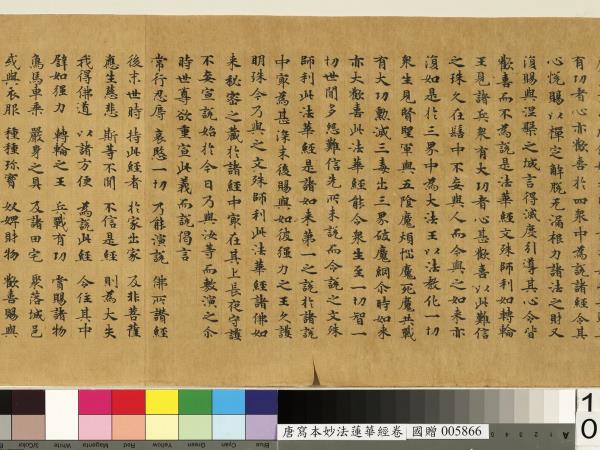 有功者心亦歡喜於四衆中為說諸經令其
心悅賜以禪定解脫无漏根力諸法之財又
復賜與涅槃之城言得滅度引導其心令皆
歡喜而不為說是法華經文殊師利如轉輪
王見諸兵衆有大功者心甚歡喜以此難信
之珠久在髻中不妄與人而今與之如來亦
復如是於三界中為大法王以法教化一切
衆生見賢聖軍與五陰魔煩惱魔死魔共戰
有大功勳滅三毒出三界破魔網尒時如來
亦大歡喜此法華經能令衆生至一切智一
切世間多怨難信先所未說而今說之文殊
師利此法華經是諸如來第一之說於諸說
中冣為甚深末後賜與如彼强力之王久護
明珠今乃與之文殊師利此法華經諸佛如
來秘密之藏於諸經中冣在其上長夜守護
不妄宣說始於今日乃與汝等而敷演之尒
時世尊欲重宣此義而說偈言
常行忍辱 哀愍一切 乃能演說 佛所讚經
後末世時 持此經者 於家出家 及非菩薩
應生慈悲 斯等不聞 不信是經 則為大失
我得佛道 以諸方便 為說此經 令住其中
譬如强力 轉輪之王 兵戰有功 賞賜諸物
鳥馬車乘 嚴身之具 及諸田宅 聚落城邑
或與衣服 種種珍寶 奴婢財物 歡喜賜與
唐寫本妙法蓮華經卷 國贈 005866
Blue Cyan Green Yellow Red Magenta White 3/Color
A
10